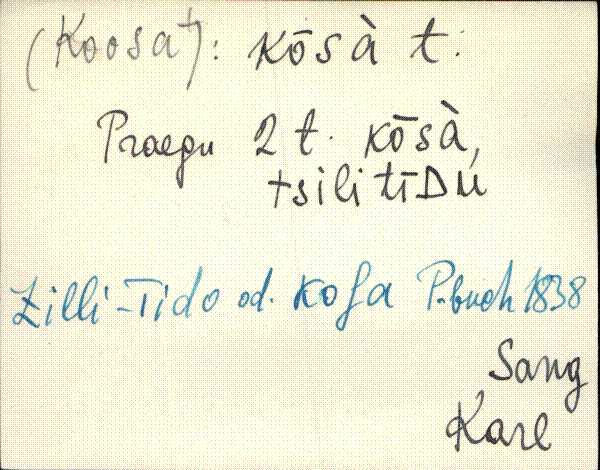 (Koosa†): kōsà t.
Praegu 2 t. kōsà,
tsilitīDU
Zilli-Tido od. Kosa P.buch 1838
Sang
Karl